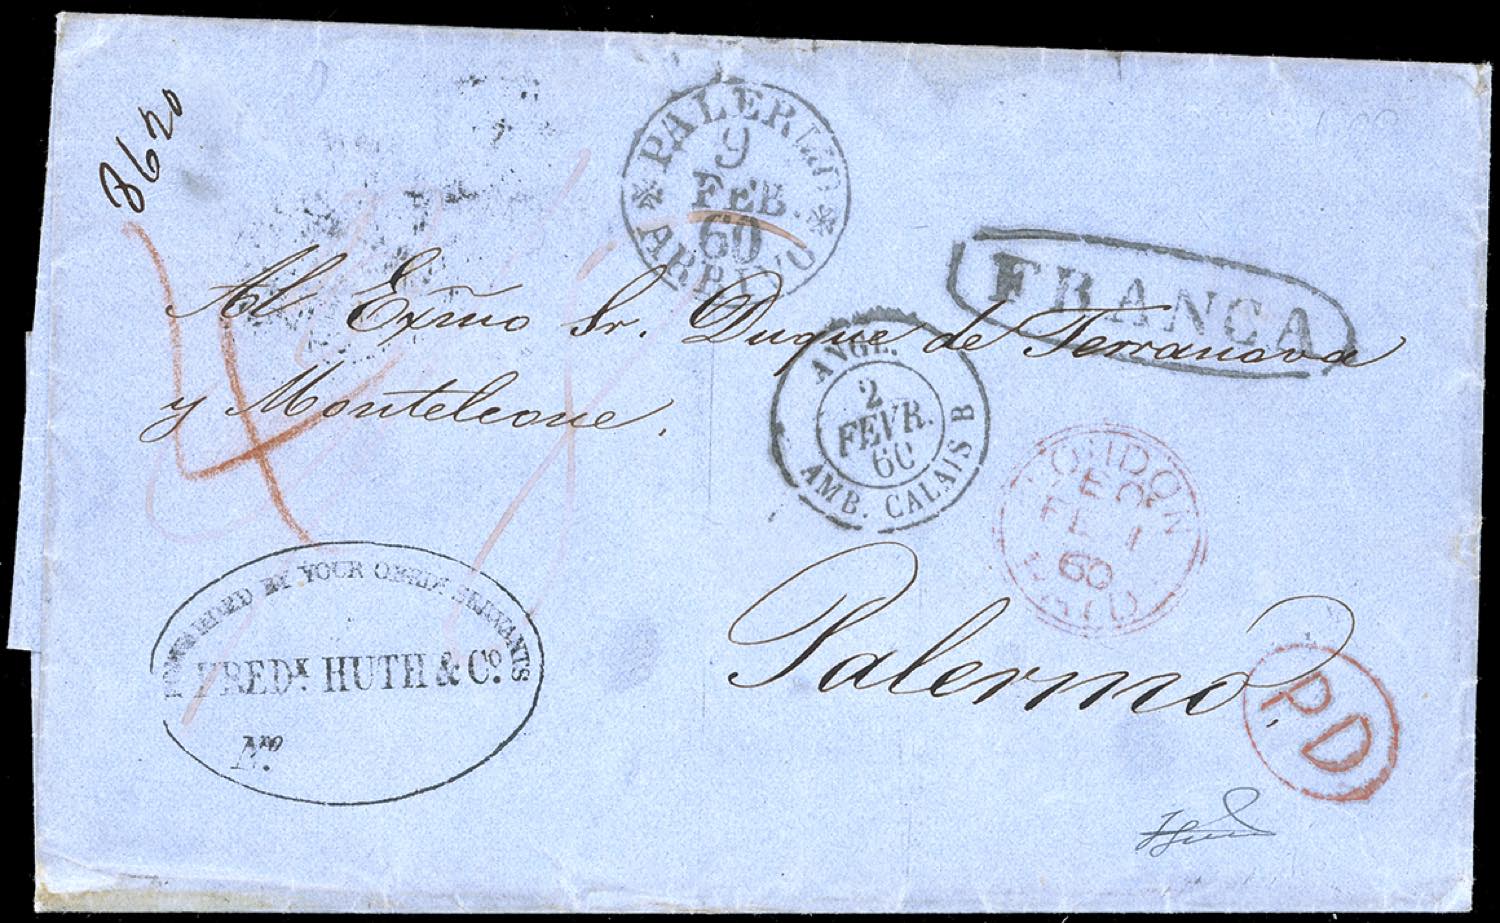 8620
PALERMO
9
FEB.
60
ARRIVO
FRANCA
Al Exmo Sr. Duque de Terranova
y Monteleone.
ANGL.
2
FEVR.
60
AMB. CALAIS B
LONDON
FE 1
60
PAID
4
FORWARDED BY YOUR OBEDT. SERVANTS
FREDK. HUTH & Co.
No.
Palermo.
PD